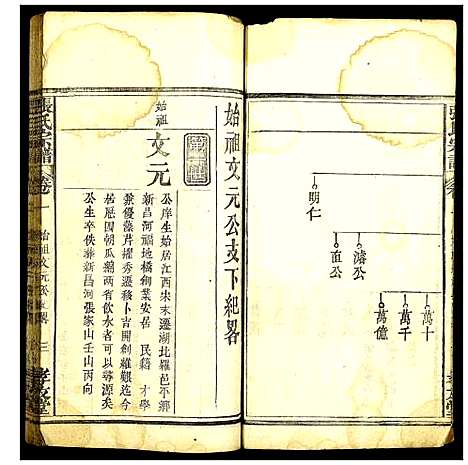 明仁
濤公
直公
萬十
萬千
萬億
始祖文元公支下紀畧
第一世
始祖
文元
公庠生始居江西宋末遷湖北羅邑平鄉
新昌河福地橋創業安居 民籍 才學
兼優藻芹擢秀遷移卜吉開創維艱迄今
苗厝因朝瓜綿兩省依然者可以尋源矣
公生卒佚葬新昌河張家山壬山丙向
張氏宗譜
卷一
始祖文元公紀畧
三
孝友堂